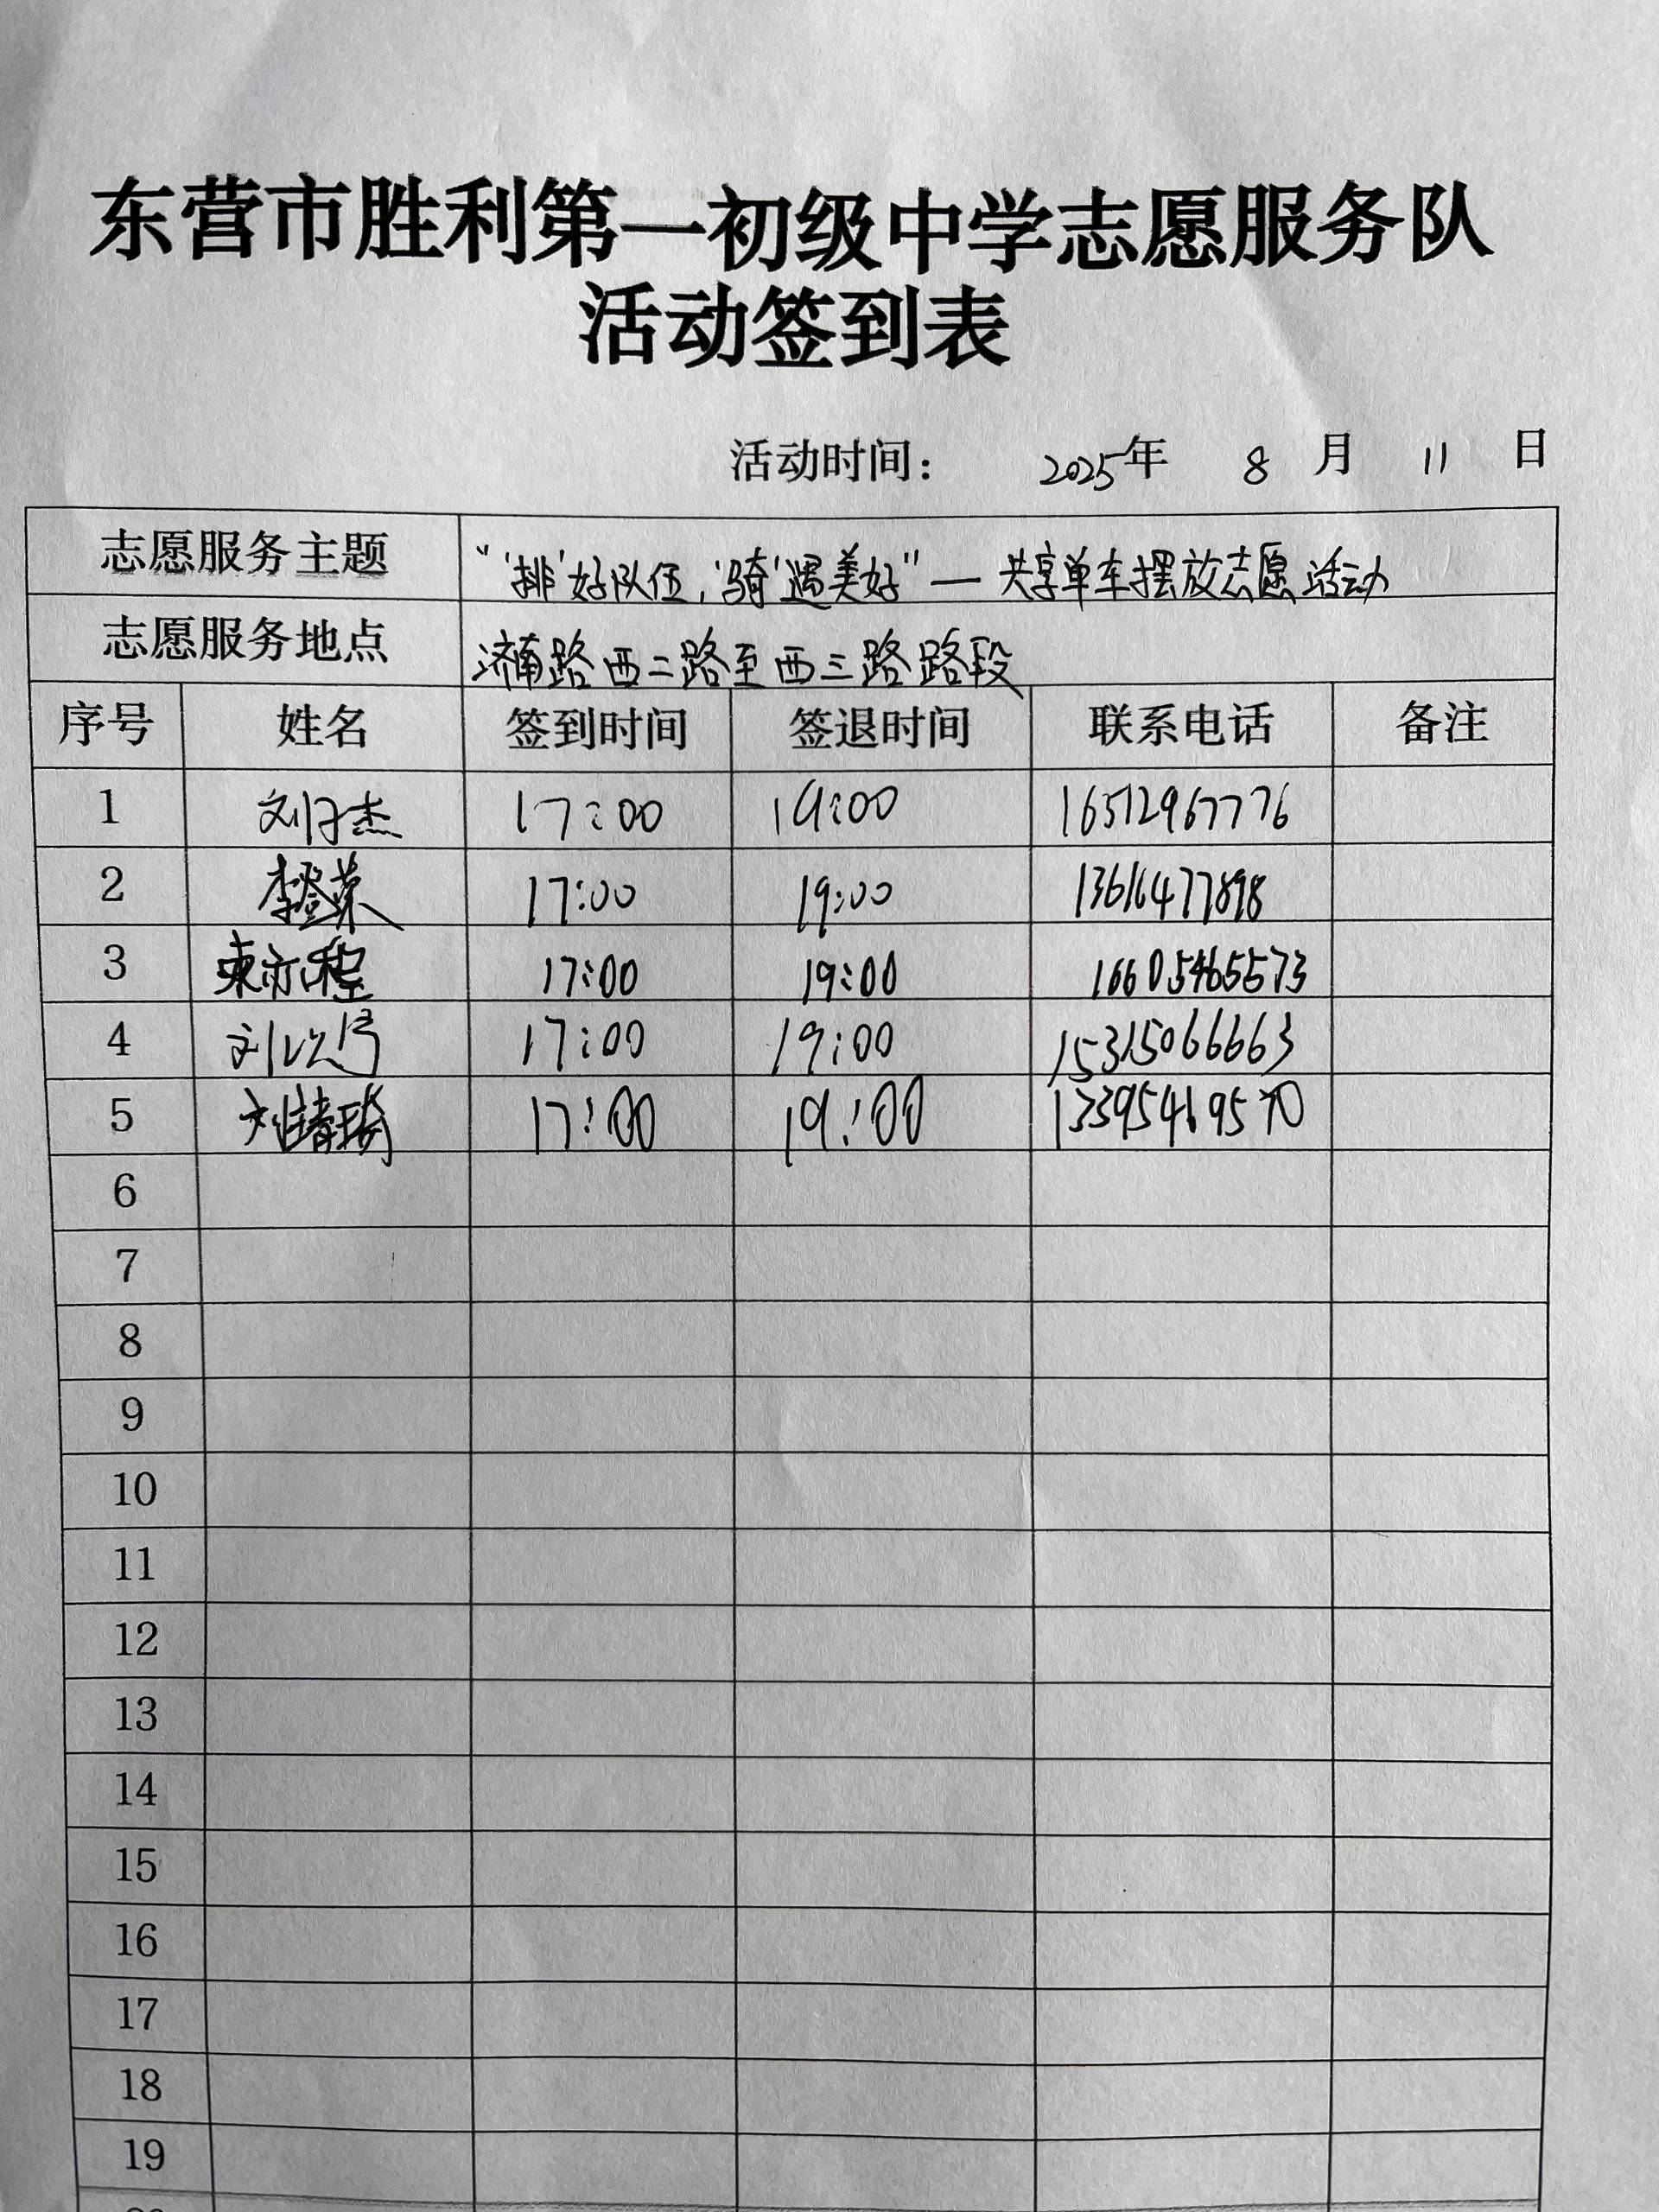 东营市胜利第一初级中学志愿服务队
活动签到表
活动时间： 2025年 8 月 11 日
志愿服务主题 “‘排’好队伍,‘骑’遇美好”— 共享单车摆放志愿活动
志愿服务地点 济南路西二路至西三路路段
序号 姓名 签到时间 签退时间 联系电话 备注
1 刘子杰 17:00 19:00 16512967776
2 17:00 19:00 13616477898
3 17:00 19:00 16605465573
4 17:00 19:00 15315066663
5 17:00 19:00
6
7
8
9
10
11
12
13
14
15
16
17
18
19